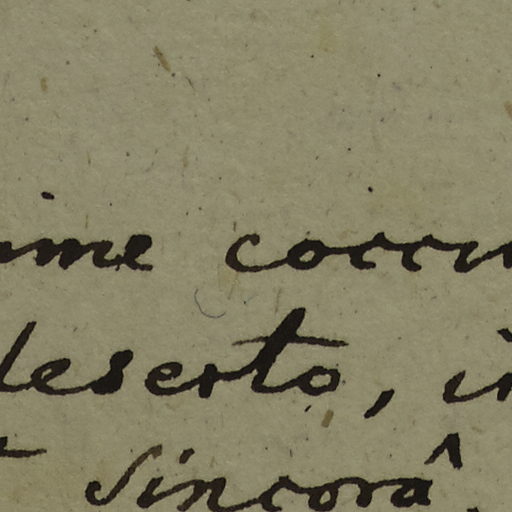 ime coccin
deserto, in
Sincorâ